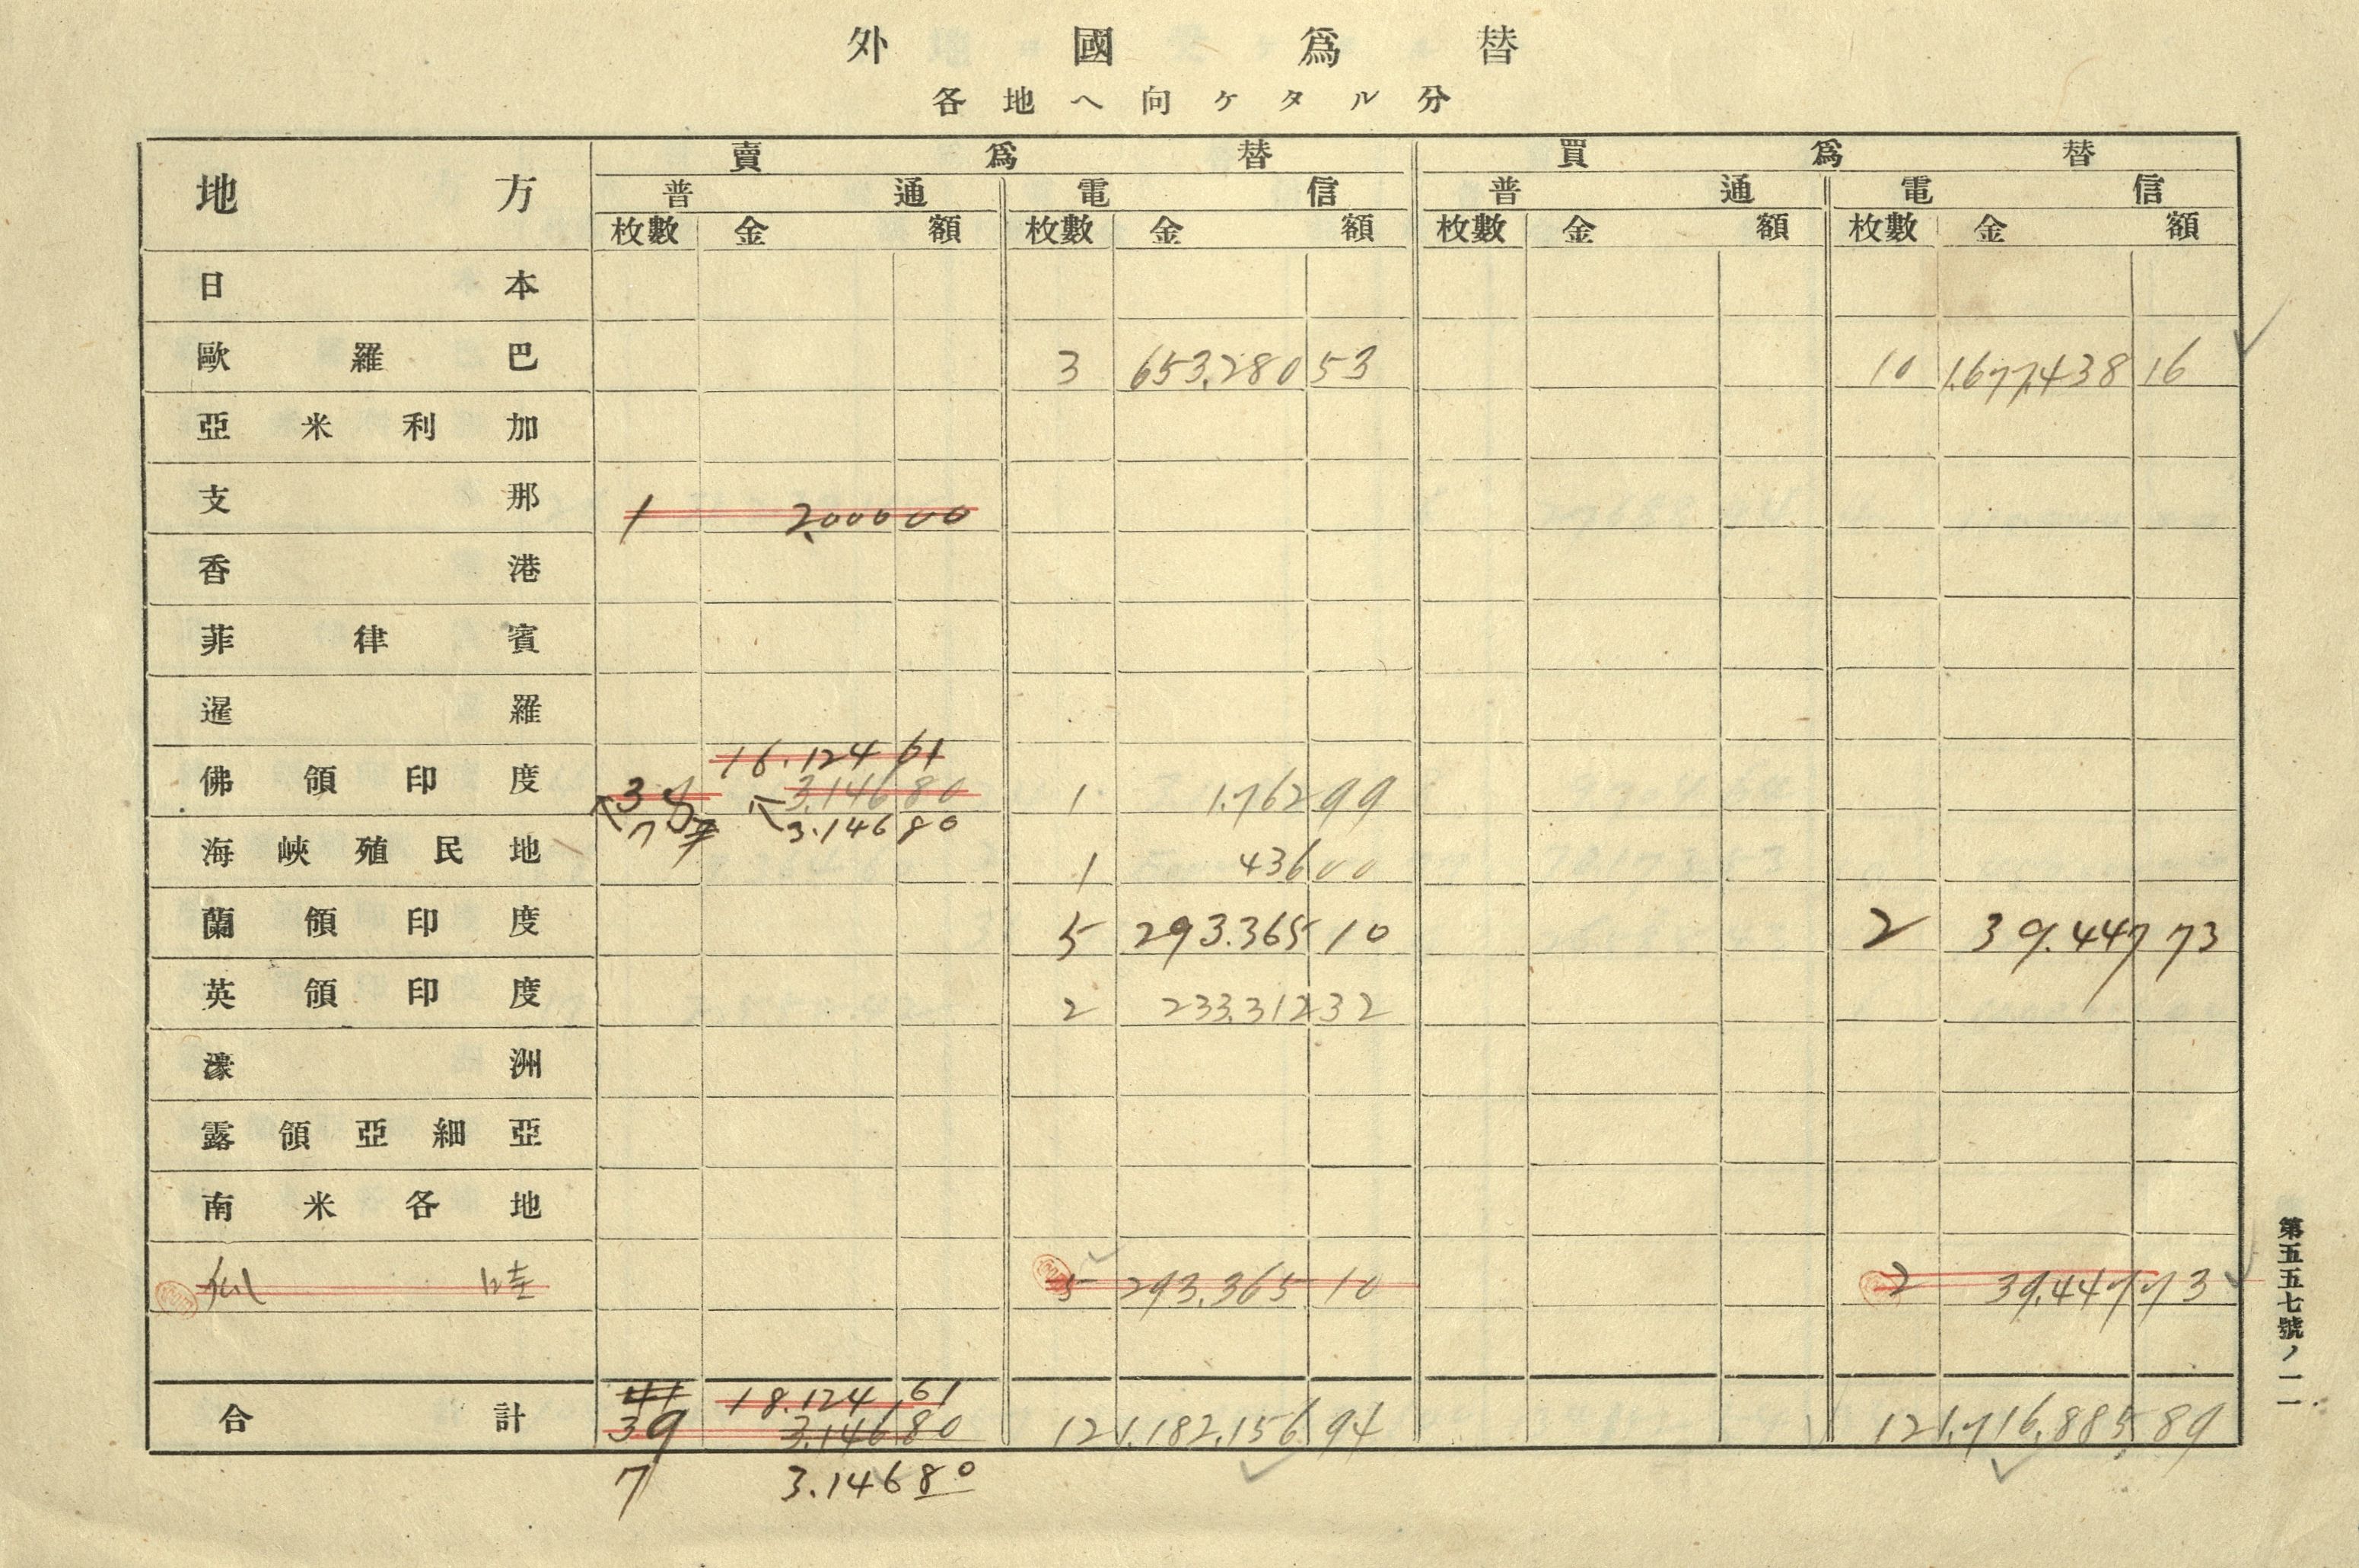 外國爲替
各地ヘ向ケタル分
地方 賣爲替 買爲替
普通 電信 普通 電信
枚數 金額 枚數 金額 枚數 金額 枚數 金額
日本
歐羅巴 3 653,280 53 10 1,677,438 16
亞米利加
支那 1 2,000 00
香港
菲律賓
暹羅
16.124 61
佛領印度 3 3.146 80 1 1.762 99
7 3.146 80
海峽殖民地 1 436 00
蘭領印度 5 293.365 10 2 39.447 73
英領印度 2 233.312 32
濠洲
露領亞細亞
南米各地
5 293,365 10 2 39,447 73
41 18.124 61
合計 39 3.146 80 12 1,182,156 94 12 1,716,885 89
7 3.146 80
第五五七號ノ一一